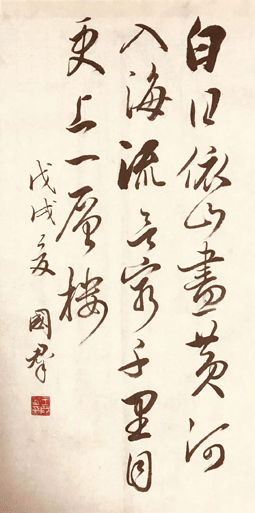 白日依山盡黄河
入海流欲窮千里目
更上一層樓
戊戌夏 國群